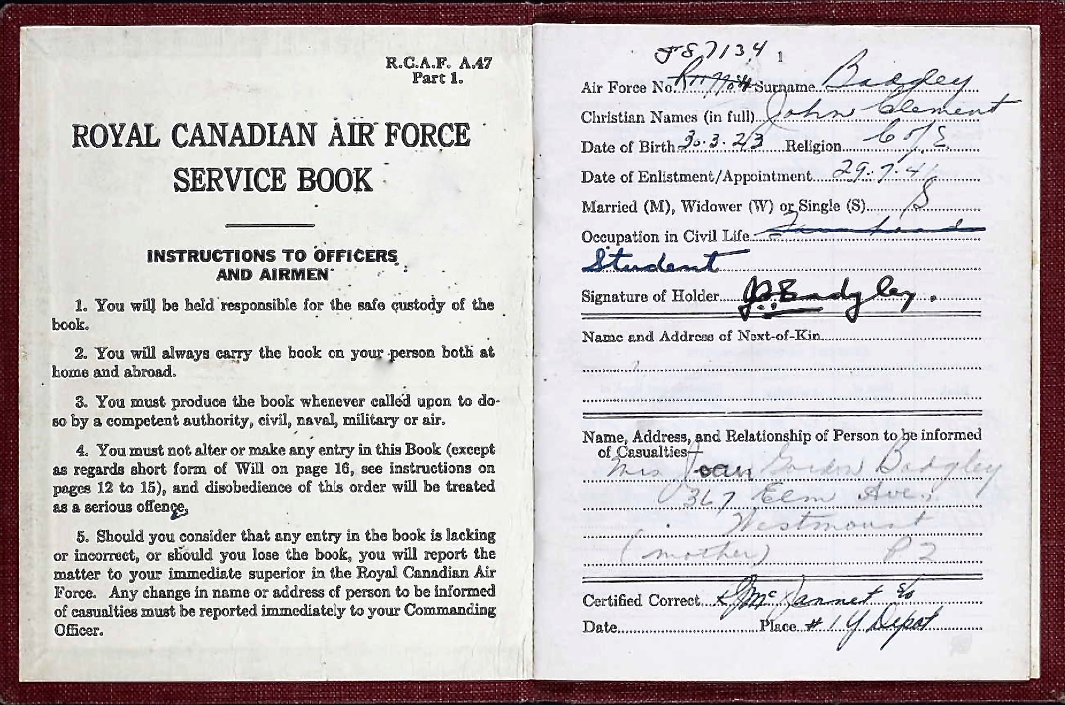 R.C.A.F. A.47
Part 1.
ROYAL CANADIAN AIR FORCE
SERVICE BOOK
INSTRUCTIONS TO OFFICERS
AND AIRMEN
1. You will be held responsible for the safe custody of the
book.
2. You will always carry the book on your person both at
home and abroad.
3. You must produce the book whenever called upon to do
so by a competent authority, civil, naval, military or air.
4. You must not alter or make any entry in this Book (except
as regards short form of Will on page 16, see instructions on
pages 12 to 15), and disobedience of this order will be treated
as a serious offence.
5. Should you consider that any entry in the book is lacking
or incorrect, or should you lose the book, you will report the
matter to your immediate superior in the Royal Canadian Air
Force. Any change in name or address of person to be informed
of casualties must be reported immediately to your Commanding
Officer.
J87134 1
Air Force No. Surname Badgley
Christian Names (in full) John Clement
Date of Birth 30.3.23 Religion C of E
Date of Enlistment/Appointment 29.7.41
Married (M), Widower (W) or Single (S) S
Occupation in Civil Life
Student
Signature of Holder Badgley.
Name and Address of Next-of-Kin
Name, Address, and Relationship of Person to be informed
of Casualties
Mrs Joan Gordon Badgley
367 Elm Ave.
Westmount
(mother) P2
Certified Correct
Date Place #1 Y Depot